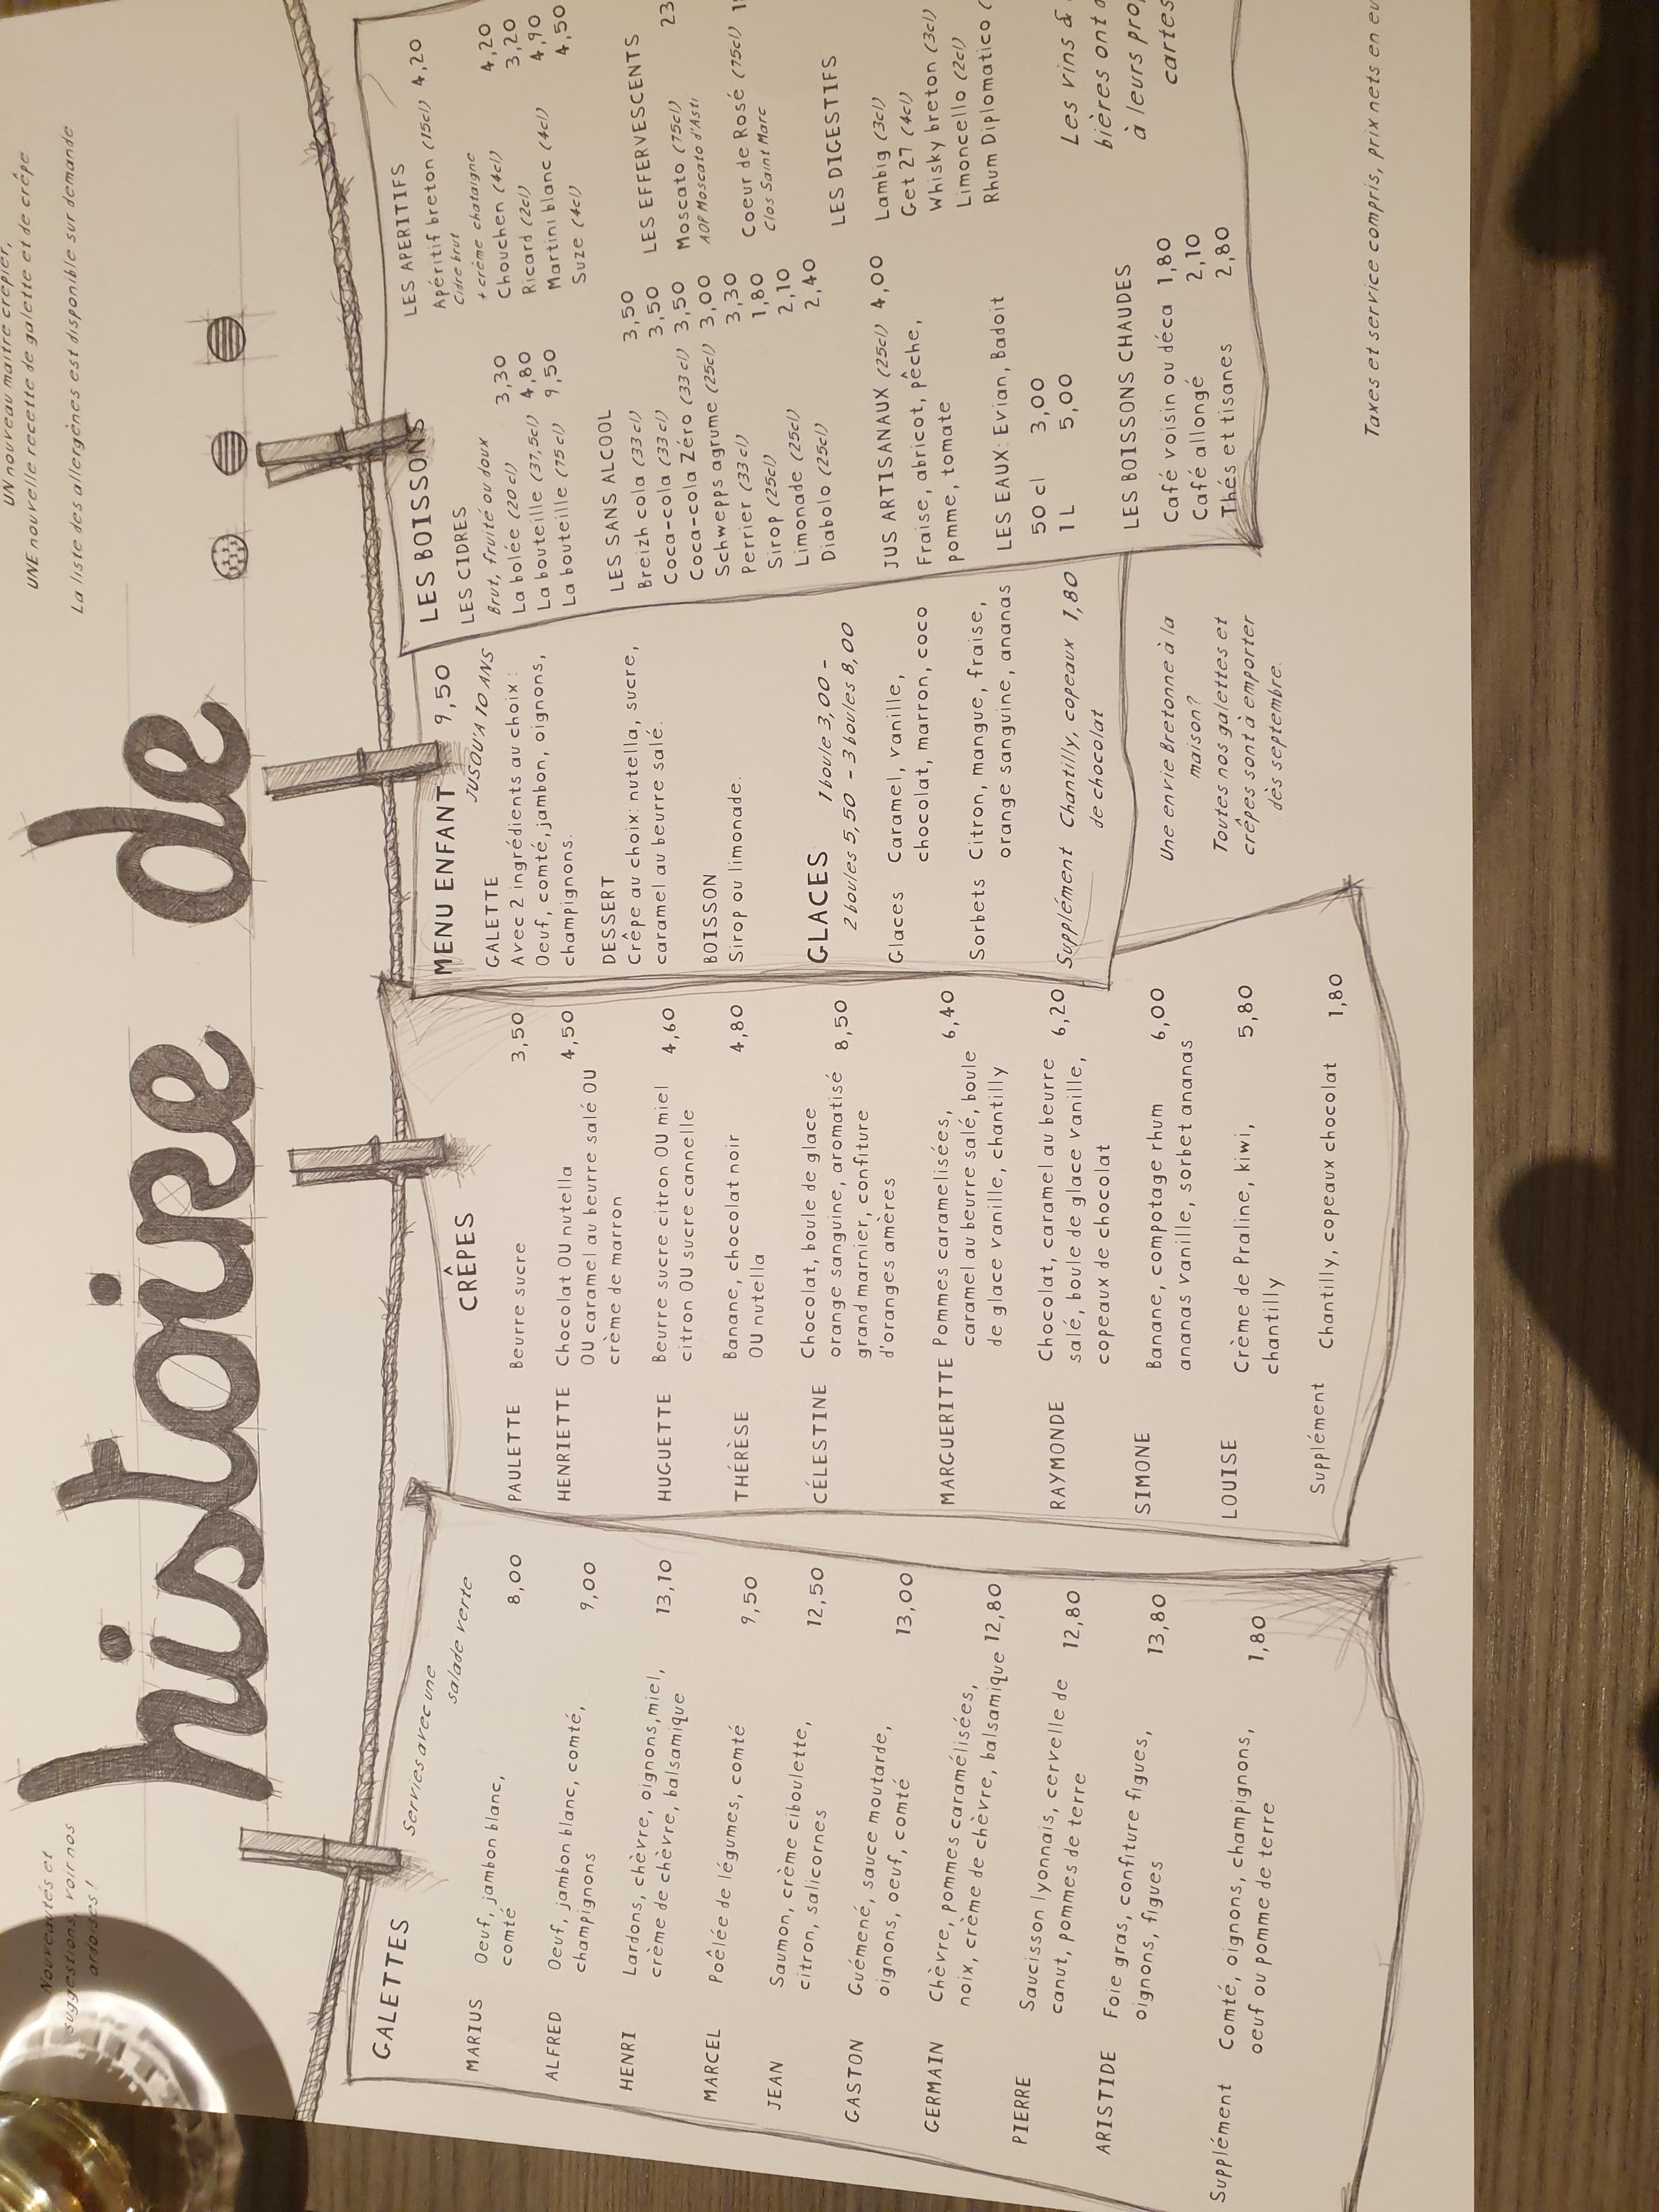 Nouveautés et
suggestions, voir nos
ardoises !
UN nouveau maître crêpier,
UNE nouvelle recette de galette et de crêpe
La liste des allergènes est disponible sur demande
histoire de
GALETTES
Servies avec une
salade verte
MARIUS Oeuf, jambon blanc, 8,00
comté
ALFRED Oeuf, jambon blanc, comté, 9,00
champignons
HENRI Lardons, chèvre, oignons, miel, 13,10
crème de chèvre, balsamique
MARCEL Poêlée de légumes, comté 9,50
JEAN Saumon, crème ciboulette, 12,50
citron, salicornes
GASTON Guémené, sauce moutarde, 13,00
oignons, oeuf, comté
GERMAIN Chèvre, pommes caramélisées,
noix, crème de chèvre, balsamique 12,80
PIERRE Saucisson lyonnais, cervelle de 12,80
canut, pommes de terre
ARISTIDE Foie gras, confiture figues, 13,80
oignons, figues
Supplément Comté, oignons, champignons, 1,80
oeuf ou pomme de terre
CRÊPES
PAULETTE Beurre sucre 3,50
HENRIETTE Chocolat OU nutella 4,50
OU caramel au beurre salé OU
crème de marron
HUGUETTE Beurre sucre citron OU miel 4,60
citron OU sucre cannelle
THÉRÈSE Banane, chocolat noir 4,80
OU nutella
CÉLESTINE Chocolat, boule de glace
orange sanguine, aromatisé 8,50
grand marnier, confiture
d'oranges amères
MARGUERITTE Pommes caramelisées, 6,40
caramel au beurre salé, boule
de glace vanille, chantilly
RAYMONDE Chocolat, caramel au beurre 6,20
salé, boule de glace vanille,
copeaux de chocolat
SIMONE Banane, compotage rhum 6,00
ananas vanille, sorbet ananas
LOUISE Crème de Praline, kiwi, 5,80
chantilly
Supplément Chantilly, copeaux chocolat 1,80
MENU ENFANT 9,50
JUSQU'A 10 ANS
GALETTE
Avec 2 ingrédients au choix :
Oeuf, comté, jambon, oignons,
champignons.
DESSERT
Crêpe au choix: nutella, sucre,
caramel au beurre salé.
BOISSON
Sirop ou limonade.
GLACES 1 boule 3,00 -
2 boules 5,50 - 3 boules 8,00
Glaces Caramel, vanille,
chocolat, marron, coco
Sorbets Citron, mangue, fraise,
orange sanguine, ananas
Supplément Chantilly, copeaux 1,80
de chocolat
Une envie Bretonne à la
maison?
Toutes nos galettes et
crêpes sont à emporter
dès septembre.
LES BOISSONS
LES CIDRES
Brut, fruité ou doux
La bolée (20 cl) 3,30
La bouteille (37,5cl) 4,80
La bouteille (75 cl) 9,50
LES SANS ALCOOL
Breizh cola (33 cl) 3,50
Coca-cola (33 cl) 3,50
Coca-cola Zéro (33 cl) 3,50
Schwepps agrume (25cl) 3,00
Perrier (33 cl) 3,30
Sirop (25cl) 1,80
Limonade (25cl) 2,10
Diabolo (25cl) 2,40
JUS ARTISANAUX (25cl) 4,00
Fraise, abricot, pêche,
pomme, tomate
LES EAUX: Evian, Badoit
50 cl 3,00
1 L 5,00
LES BOISSONS CHAUDES
Café voisin ou déca 1,80
Café allongé 2,10
Thés et tisanes 2,80
LES APERITIFS
Apéritif breton (15cl) 4,20
Cidre brut
+ crème chataigne
Chouchen (4cl) 4,20
Ricard (2cl) 3,20
Martini blanc (4cl) 4,90
Suze (4cl) 4,50
LES EFFERVESCENTS
Moscato (75cl) 23
AOP Moscato d'Asti
Coeur de Rosé (75cl)
Clos Saint Marc
LES DIGESTIFS
Lambig (3cl)
Get 27 (4cl)
Whisky breton (3cl)
Limoncello (2cl)
Rhum Diplomatico (
Les vins &
bières ont
à leurs pro
cartes
Taxes et service compris, prix nets en eu